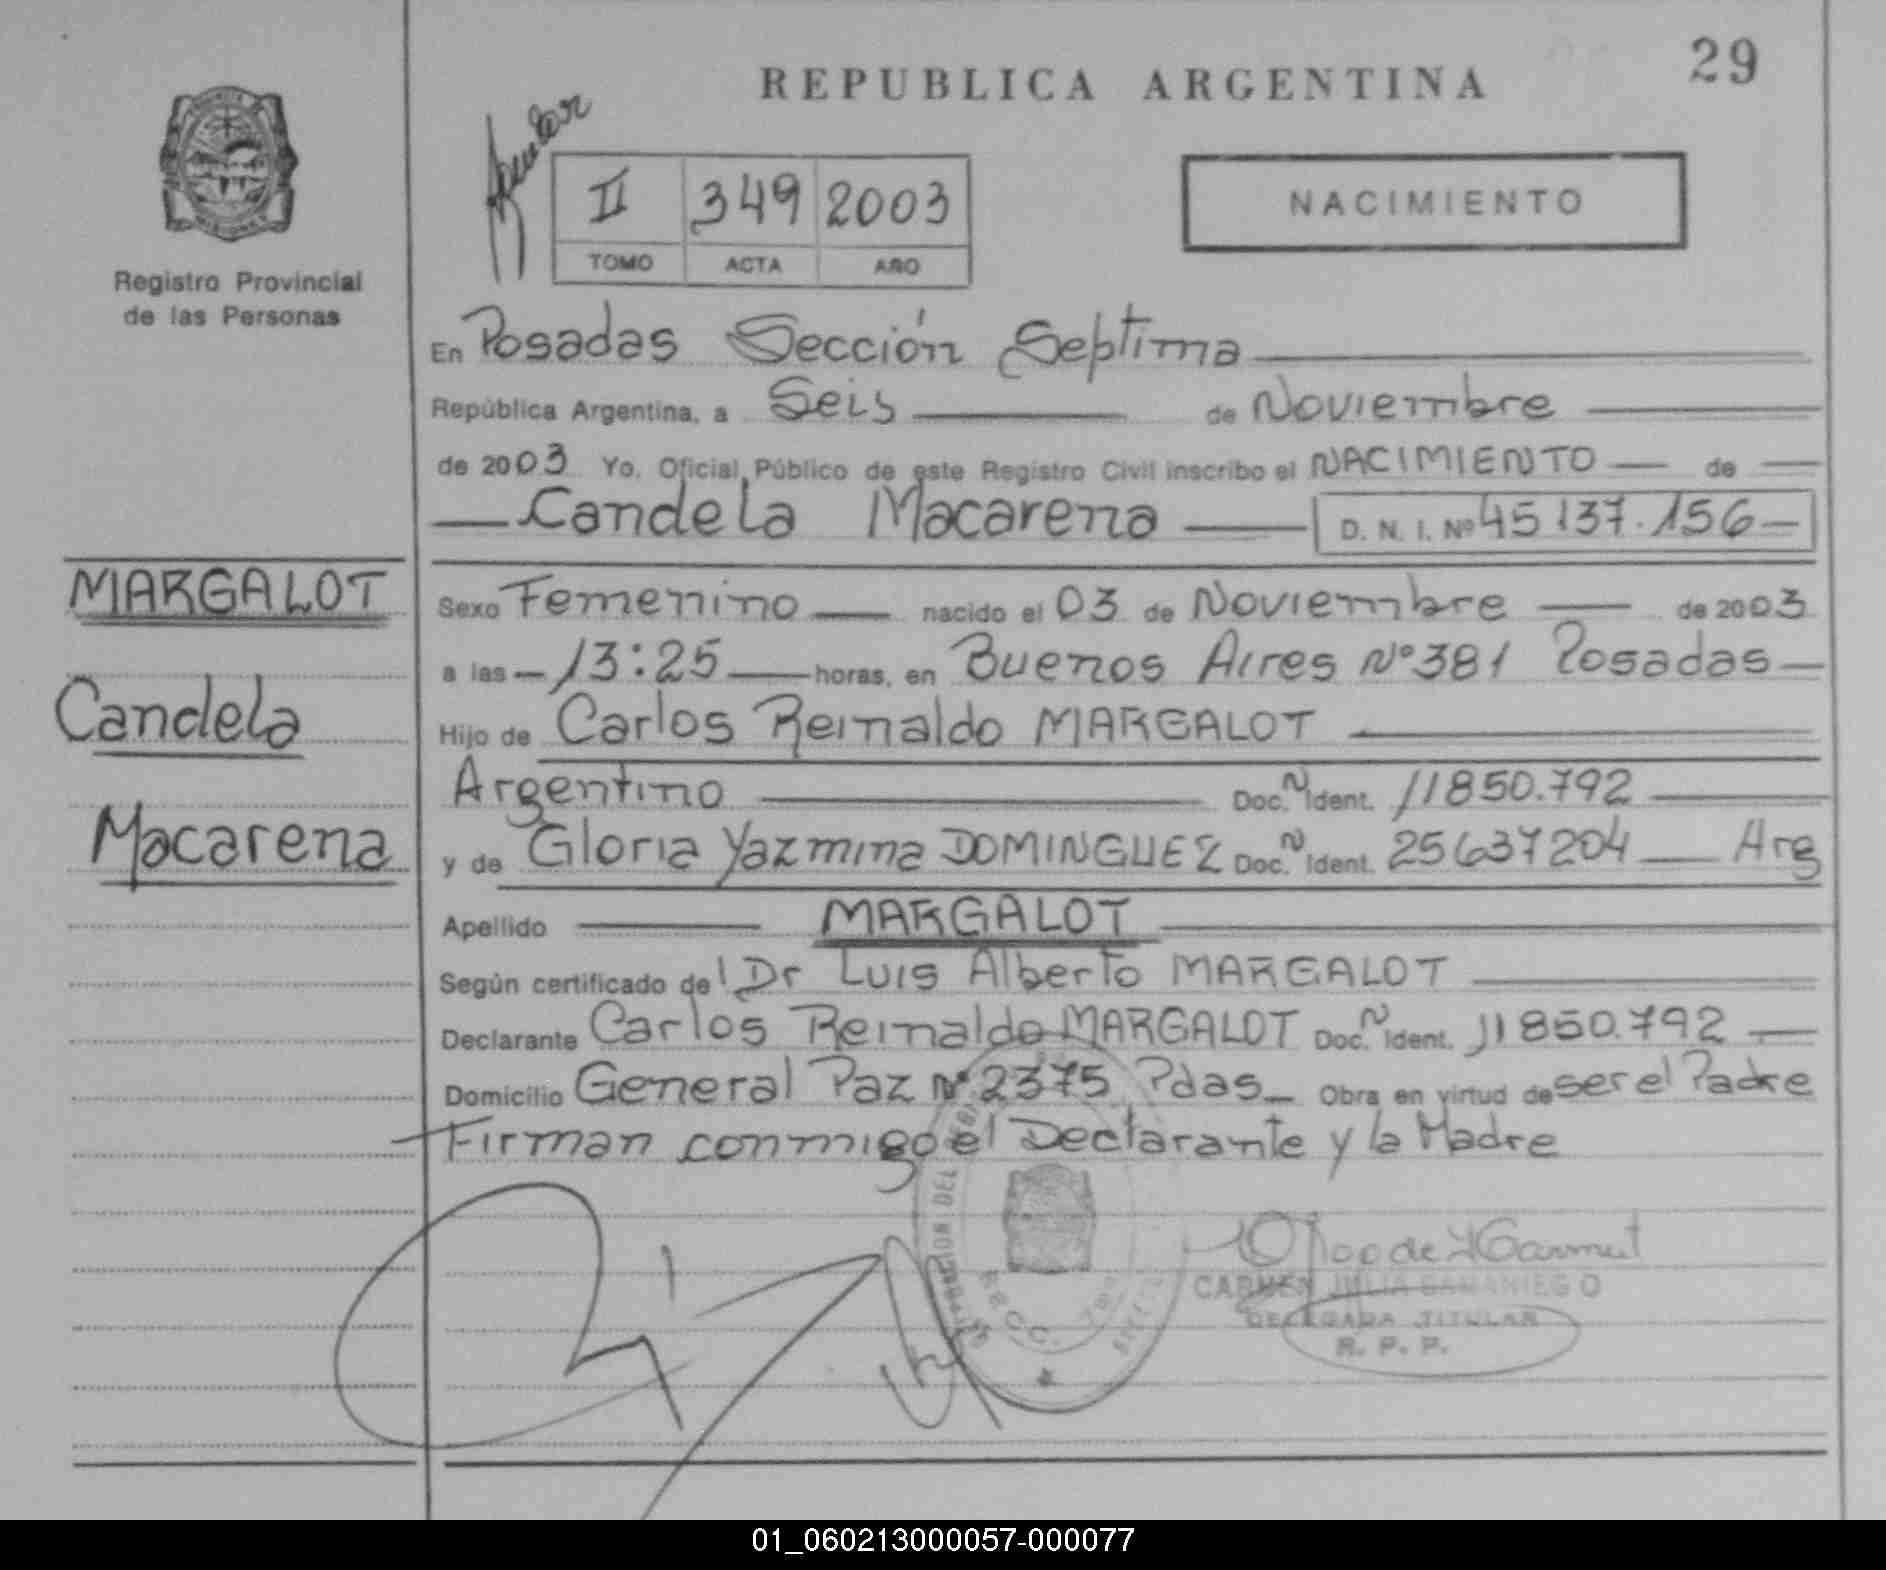 29
REPUBLICA ARGENTINA
II 349 2003
TOMO ACTA AÑO
NACIMIENTO
Registro Provincial
de las Personas
En Posadas Sección Septima
República Argentina, a Seis de Noviembre
de 2003 Yo, Oficial Público de este Registro Civil inscribo el NACIMIENTO de
Candela Macarena D. N. I. Nº 45137.156
MARGALOT
Candela
Macarena
Sexo Femenino nacido el 03 de Noviembre de 2003
a las 13:25 horas, en Buenos Aires Nº 381 Posadas
Hijo de Carlos Reinaldo MARGALOT
Argentino Doc. N Ident. 11850.792
y de Gloria Yazmina DOMINGUEZ Doc. N Ident. 25637204 Arg
Apellido MARGALOT
Según certificado del Dr Luis Alberto MARGALOT
Declarante Carlos Reinaldo MARGALOT Doc. N Ident. 11850.792
Domicilio General Paz Nº 2375 Pdas Obra en virtud de ser el Padre
Firman conmigo el Declarante y la Madre
CARMEN JULIA SAMANIEGO
DELEGADA TITULAR
R. P. P.
01_060213000057-000077